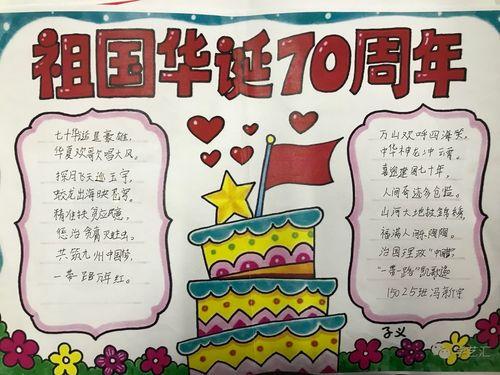 祖国华诞70周年
七十华诞显豪雄，
华夏欢歌唱大风。
探月飞天巡玉宇，
蛟龙出海映苍穹。
精准扶贫应民意，
惩治贪腐灭蛀虫。
共筑九州中国梦，
一带一路万年红。
万山欢呼四海笑，
中华神龙冲云霄。
喜迎建国七十年，
人间奇迹多包揽。
山河大地披锦绣，
福满人间
治国理政"中
"一带一路"凯歌
15025班冯新宇
子义
学艺汇